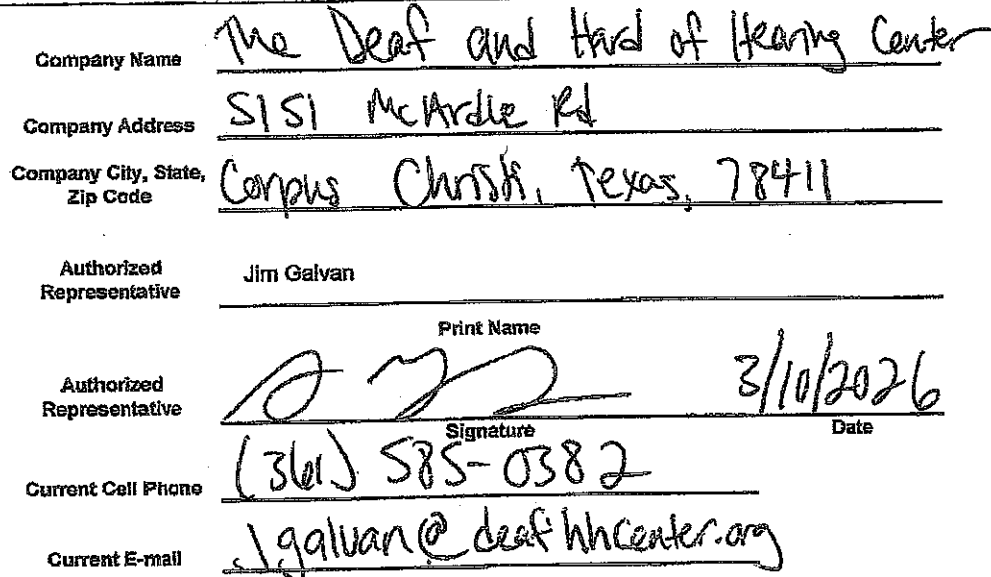 Company Name The Deaf and Hard of Hearing Center
Company Address 5151 McArdle Rd
Company City, State,
Zip Code Corpus Christi, Texas, 78411
Authorized
Representative Jim Galvan
Print Name
Authorized
Representative 3/10/2026
Signature Date
Current Cell Phone (361) 585-0382
Current E-mail J.galvan@deafhhcenter.org